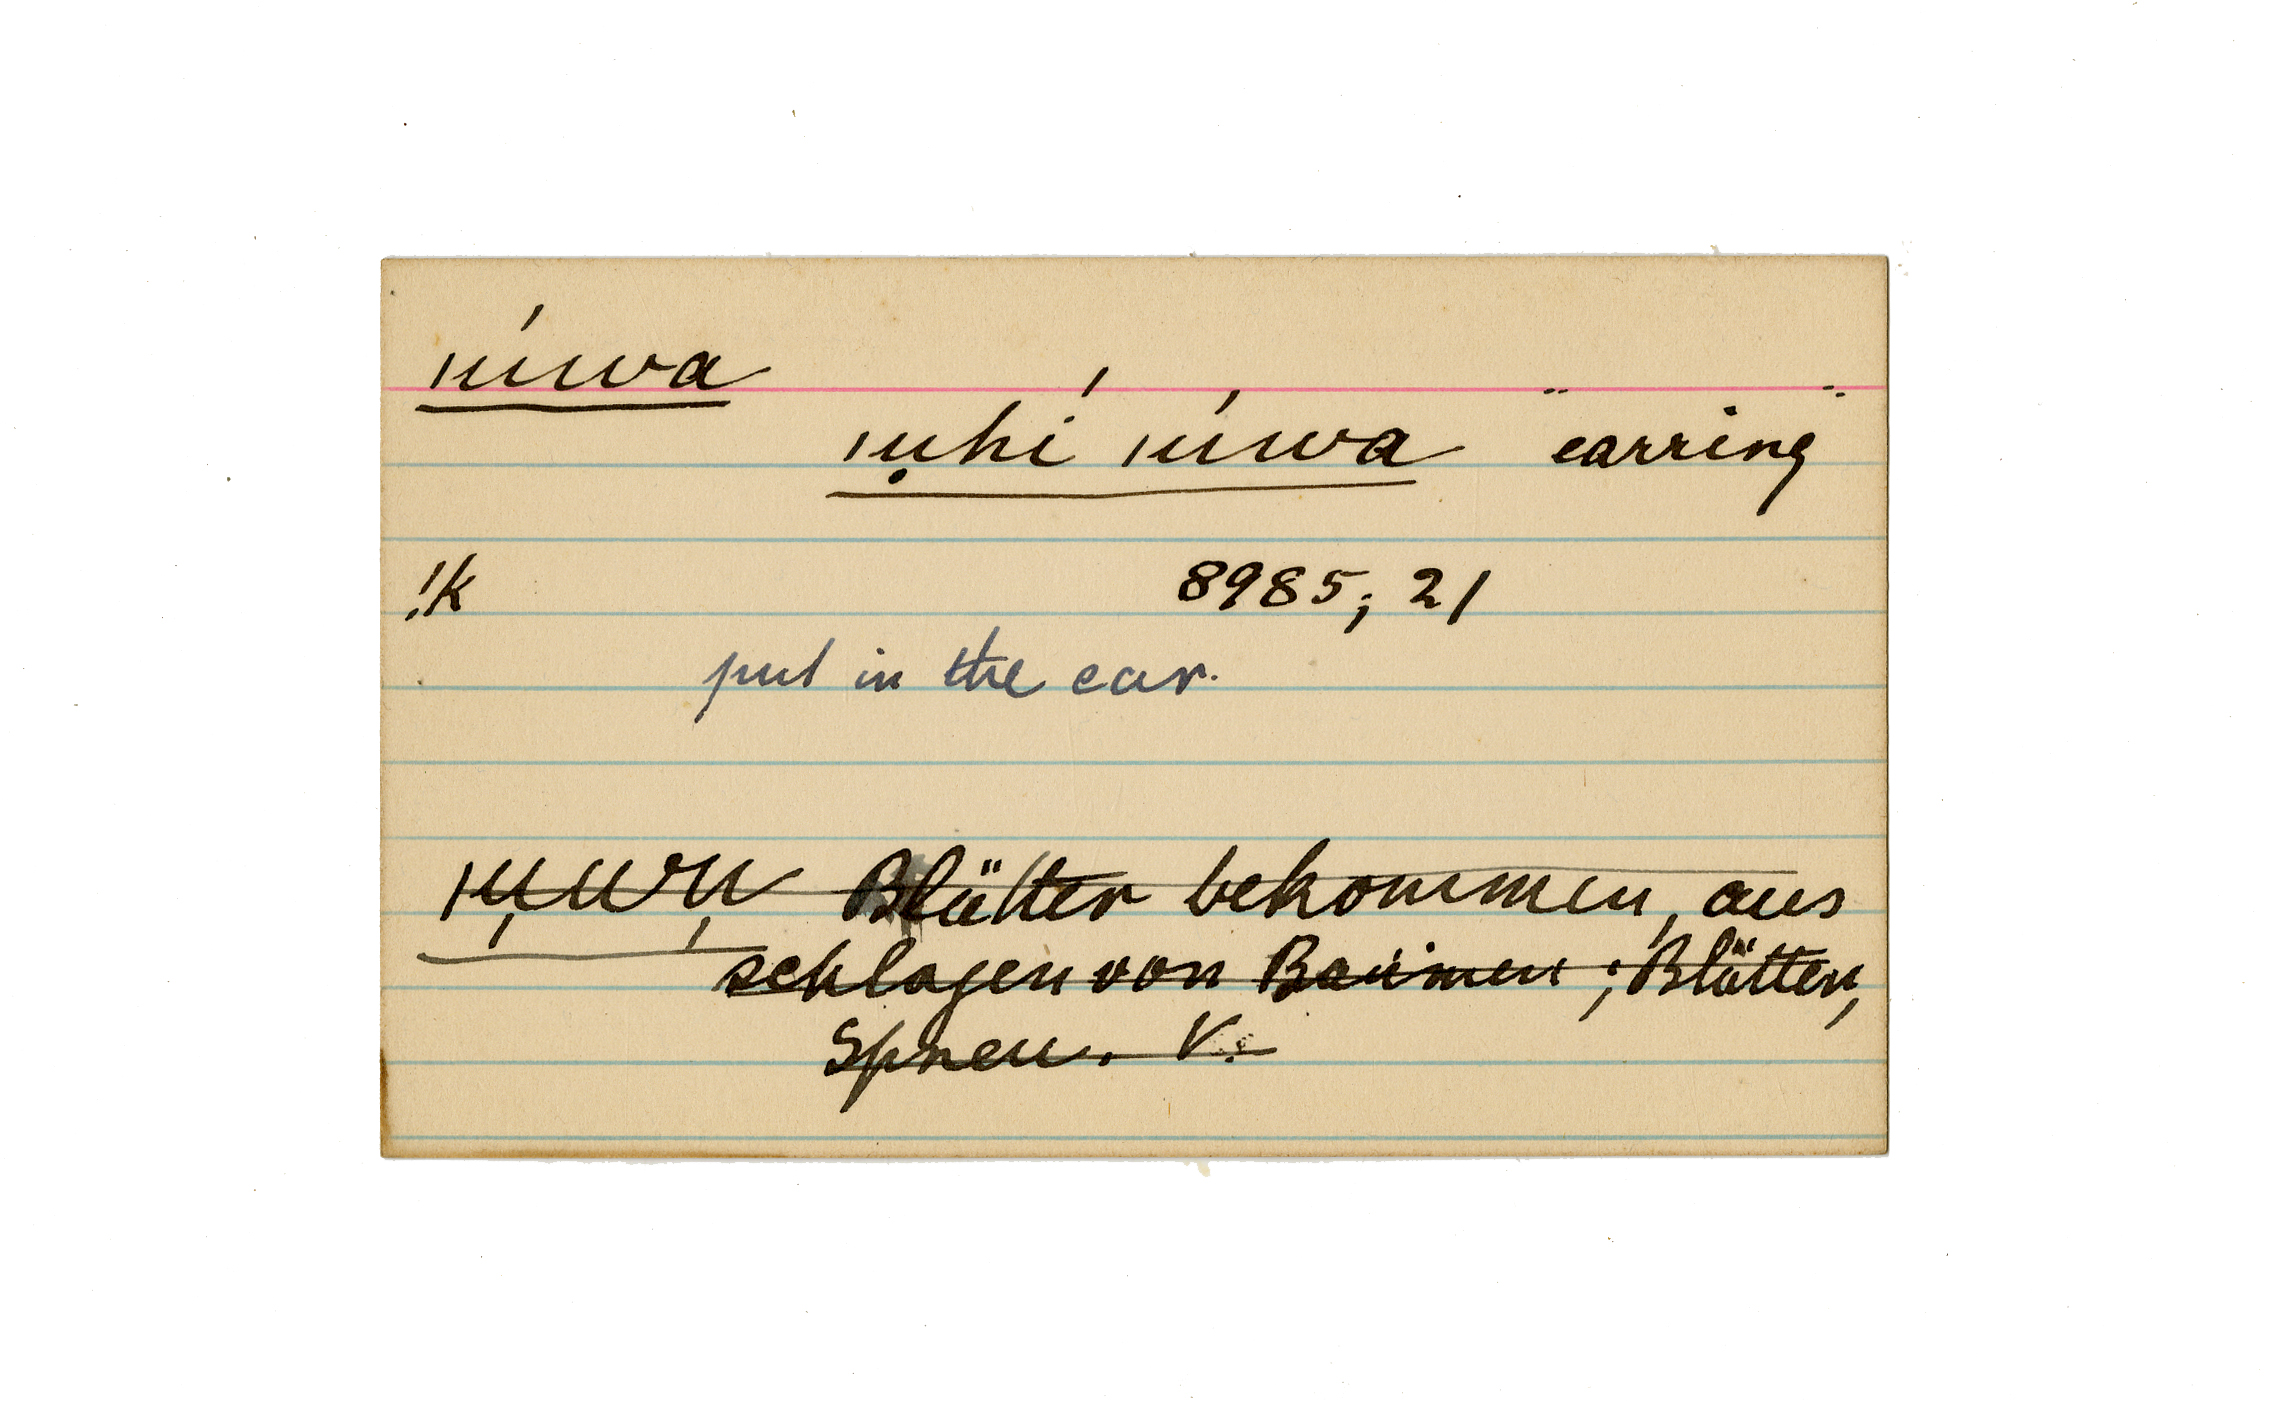 |uíwa
|ụhí |uíwa "earring"
!k 8985; 21
put in the ear.
|u̦wu̦ Blätter bekommen, aus
schlagen von Baümen; Blätter,
Spreu. V.